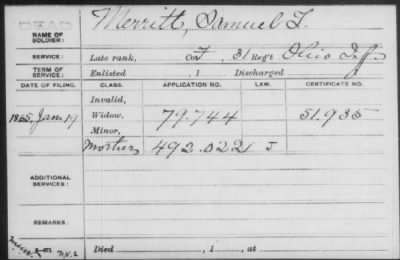 DEAD
NAME OF SOLDIER: Merritt, Samuel T.
SERVICE: Late rank, Co. I, 31 Reg't Ohio Inf.
TERM OF SERVICE: Enlisted , 1 Discharged
DATE OF FILING. CLASS. APPLICATION NO. LAW. CERTIFICATE NO.
Invalid,
1865, Jan. 17 Widow, 79.744 51.935
Minor,
Mother, 492.022 J
ADDITIONAL SERVICES:
REMARKS:
Died , 1 , at